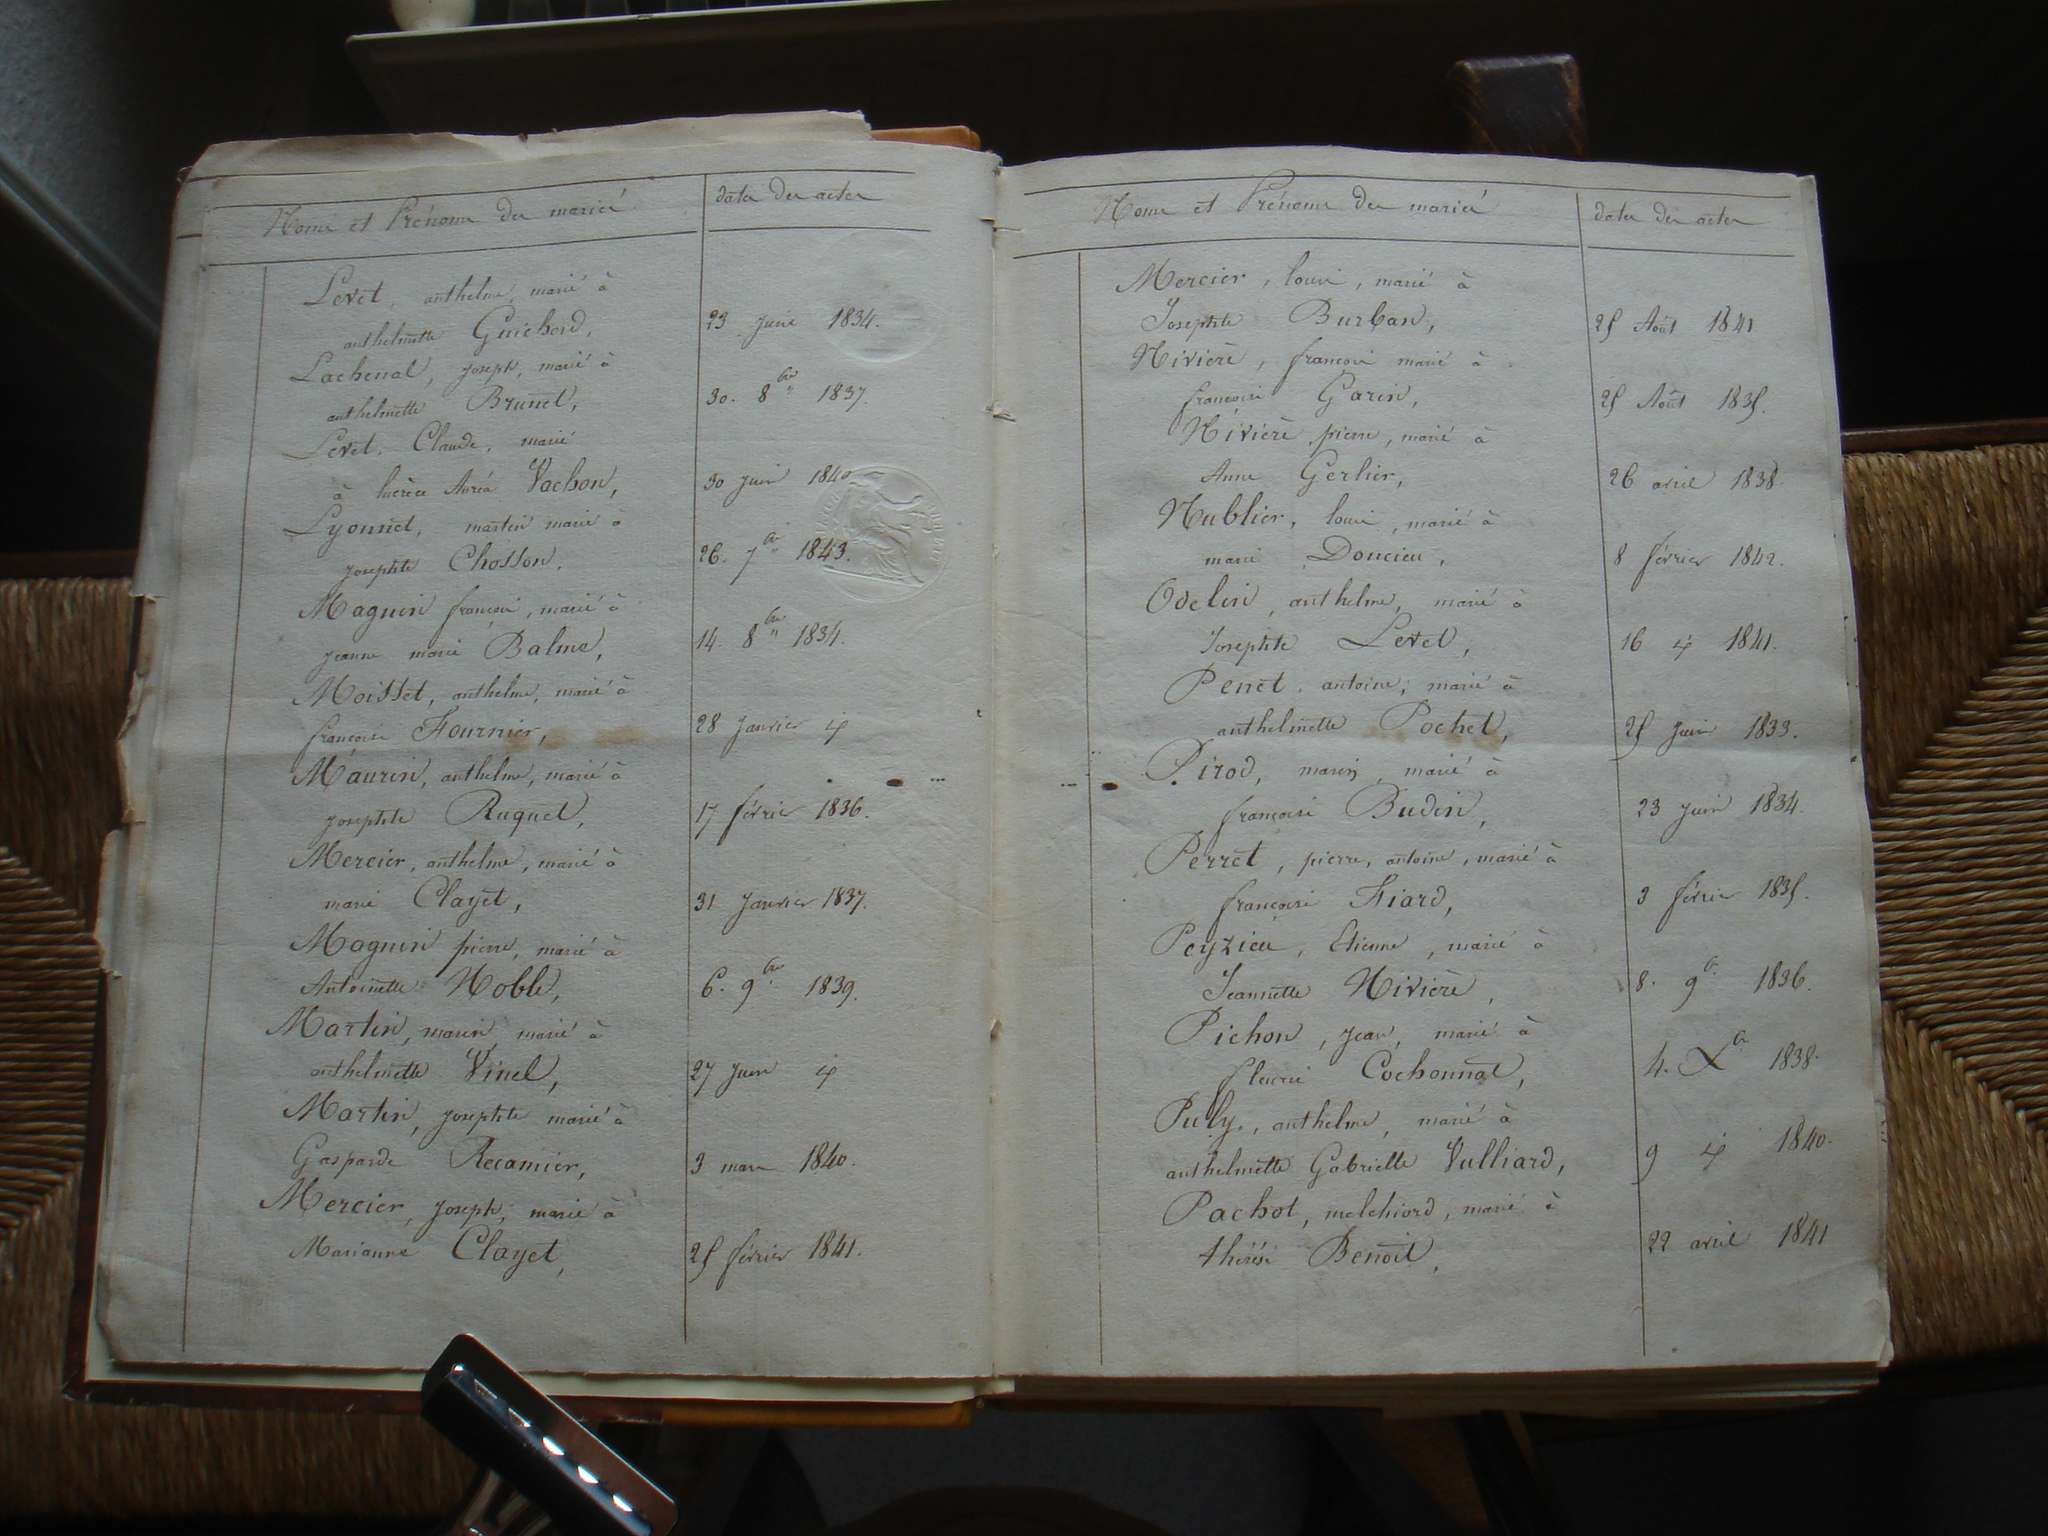 Noms et Prénoms des mariés
dates des actes
Levet, anthelme, marié à
anthelmette Guichard,
23 juin 1834.
Lachenal, joseph, marié à
anthelmette Brunet,
30. 8bre 1837.
Levet, Claude, marié
à lucrèce Vachon,
30 juin 1840
Lyonnet, martin marié à
josephte Chosson,
26. 7bre 1843.
Maguin françois, marié à
jeanne marie Balme,
14. 8bre 1834.
Moisset, anthelme, marié à
françoise Fournier,
28 janvier
Maurin, anthelme, marié à
josephte Ruquet,
17 février 1836.
Mercier, anthelme, marié à
marie Clayet,
31 janvier 1837.
Maguin pierre, marié à
Antoinette Noble,
6. 9bre 1839.
Martin, marin, marié à
anthelmette Vinel,
27 juin
Martin, josephte marié à
Gasparde Recamier,
3 mars 1840.
Mercier, joseph, marié à
Marianne Clayet,
25 février 1841.
Noms et Prénoms des mariés
dates des actes
Mercier, louis, marié à
Josephte Burban,
25 Août 1841
Nivière, françois marié à
françoise Garin,
25 Août 1835.
Nivière pierre, marié à
Anne Gerlier,
26 avril 1838.
Nublier, louis, marié à
marie Doucieu,
8 février 1842.
Odelin, anthelme, marié à
Josephte Levet,
16 1841.
Penet, antoine, marié à
anthelmette Pochet,
25 juin 1833.
Pirod, marin, marié à
françoise Budin,
23 juin 1834.
Perret, pierre, antoine, marié à
françoise Fiard,
3 février 1835.
Peyzieu, Etienne, marié à
Jeannette Nivière,
8. 9b. 1836.
Pichon, jean, marié à
fleurie Cochonnat,
4. Xb 1838.
Puly, anthelme, marié à
anthelmette Gabrielle Vulliard,
9 1840.
Pachot, melchiord, marié à
thérèse Benoit,
22 avril 1841